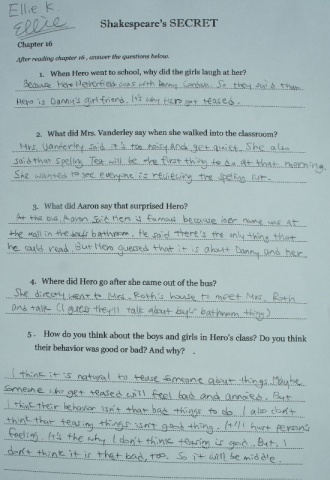 Ellie K.
Ellie
Shakespeare's SECRET
Chapter 16
After reading chapter 16, answer the questions below.
1. When Hero went to school, why did the girls laugh at her?
Because Hero Netherfield was with Danny Cordova. So they said that
Hero is Danny's girlfriend. It's why Hero got teased.
2. What did Mrs. Vanderley say when she walked into the classroom?
Mrs. Vanderley said it's too noisy and get quiet. She also
said that Spelling Test will be the first thing to do at that morning.
She wanted to see everyone is reviewing the spelling list.
3. What did Aaron say that surprised Hero?
At the bus, Aaron said Hero is famous because her name was at
the wall in the boys' bathroom. He said there's the only thing that
he could read. But Hero guessed that it is about Danny and her.
4. Where did Hero go after she came out of the bus?
She directly went to Mrs. Roth's house to meet Mrs. Roth
and talk (I guess they'll talk about boy's bathroom thing)
5. How do you think about the boys and girls in Hero's class? Do you think
their behavior was good or bad? And why?
I think it is natural to tease someone about things. Maybe
someone who get teased will feel bad and annoied. But
I think their behavior isn't that bad things to do. I also don't
think that teasing things isn't good thing. It'll hurt person's
feeling. It's the why I don't think teasing is good. But, I
don't think it is that bad, too. So it will be middle.